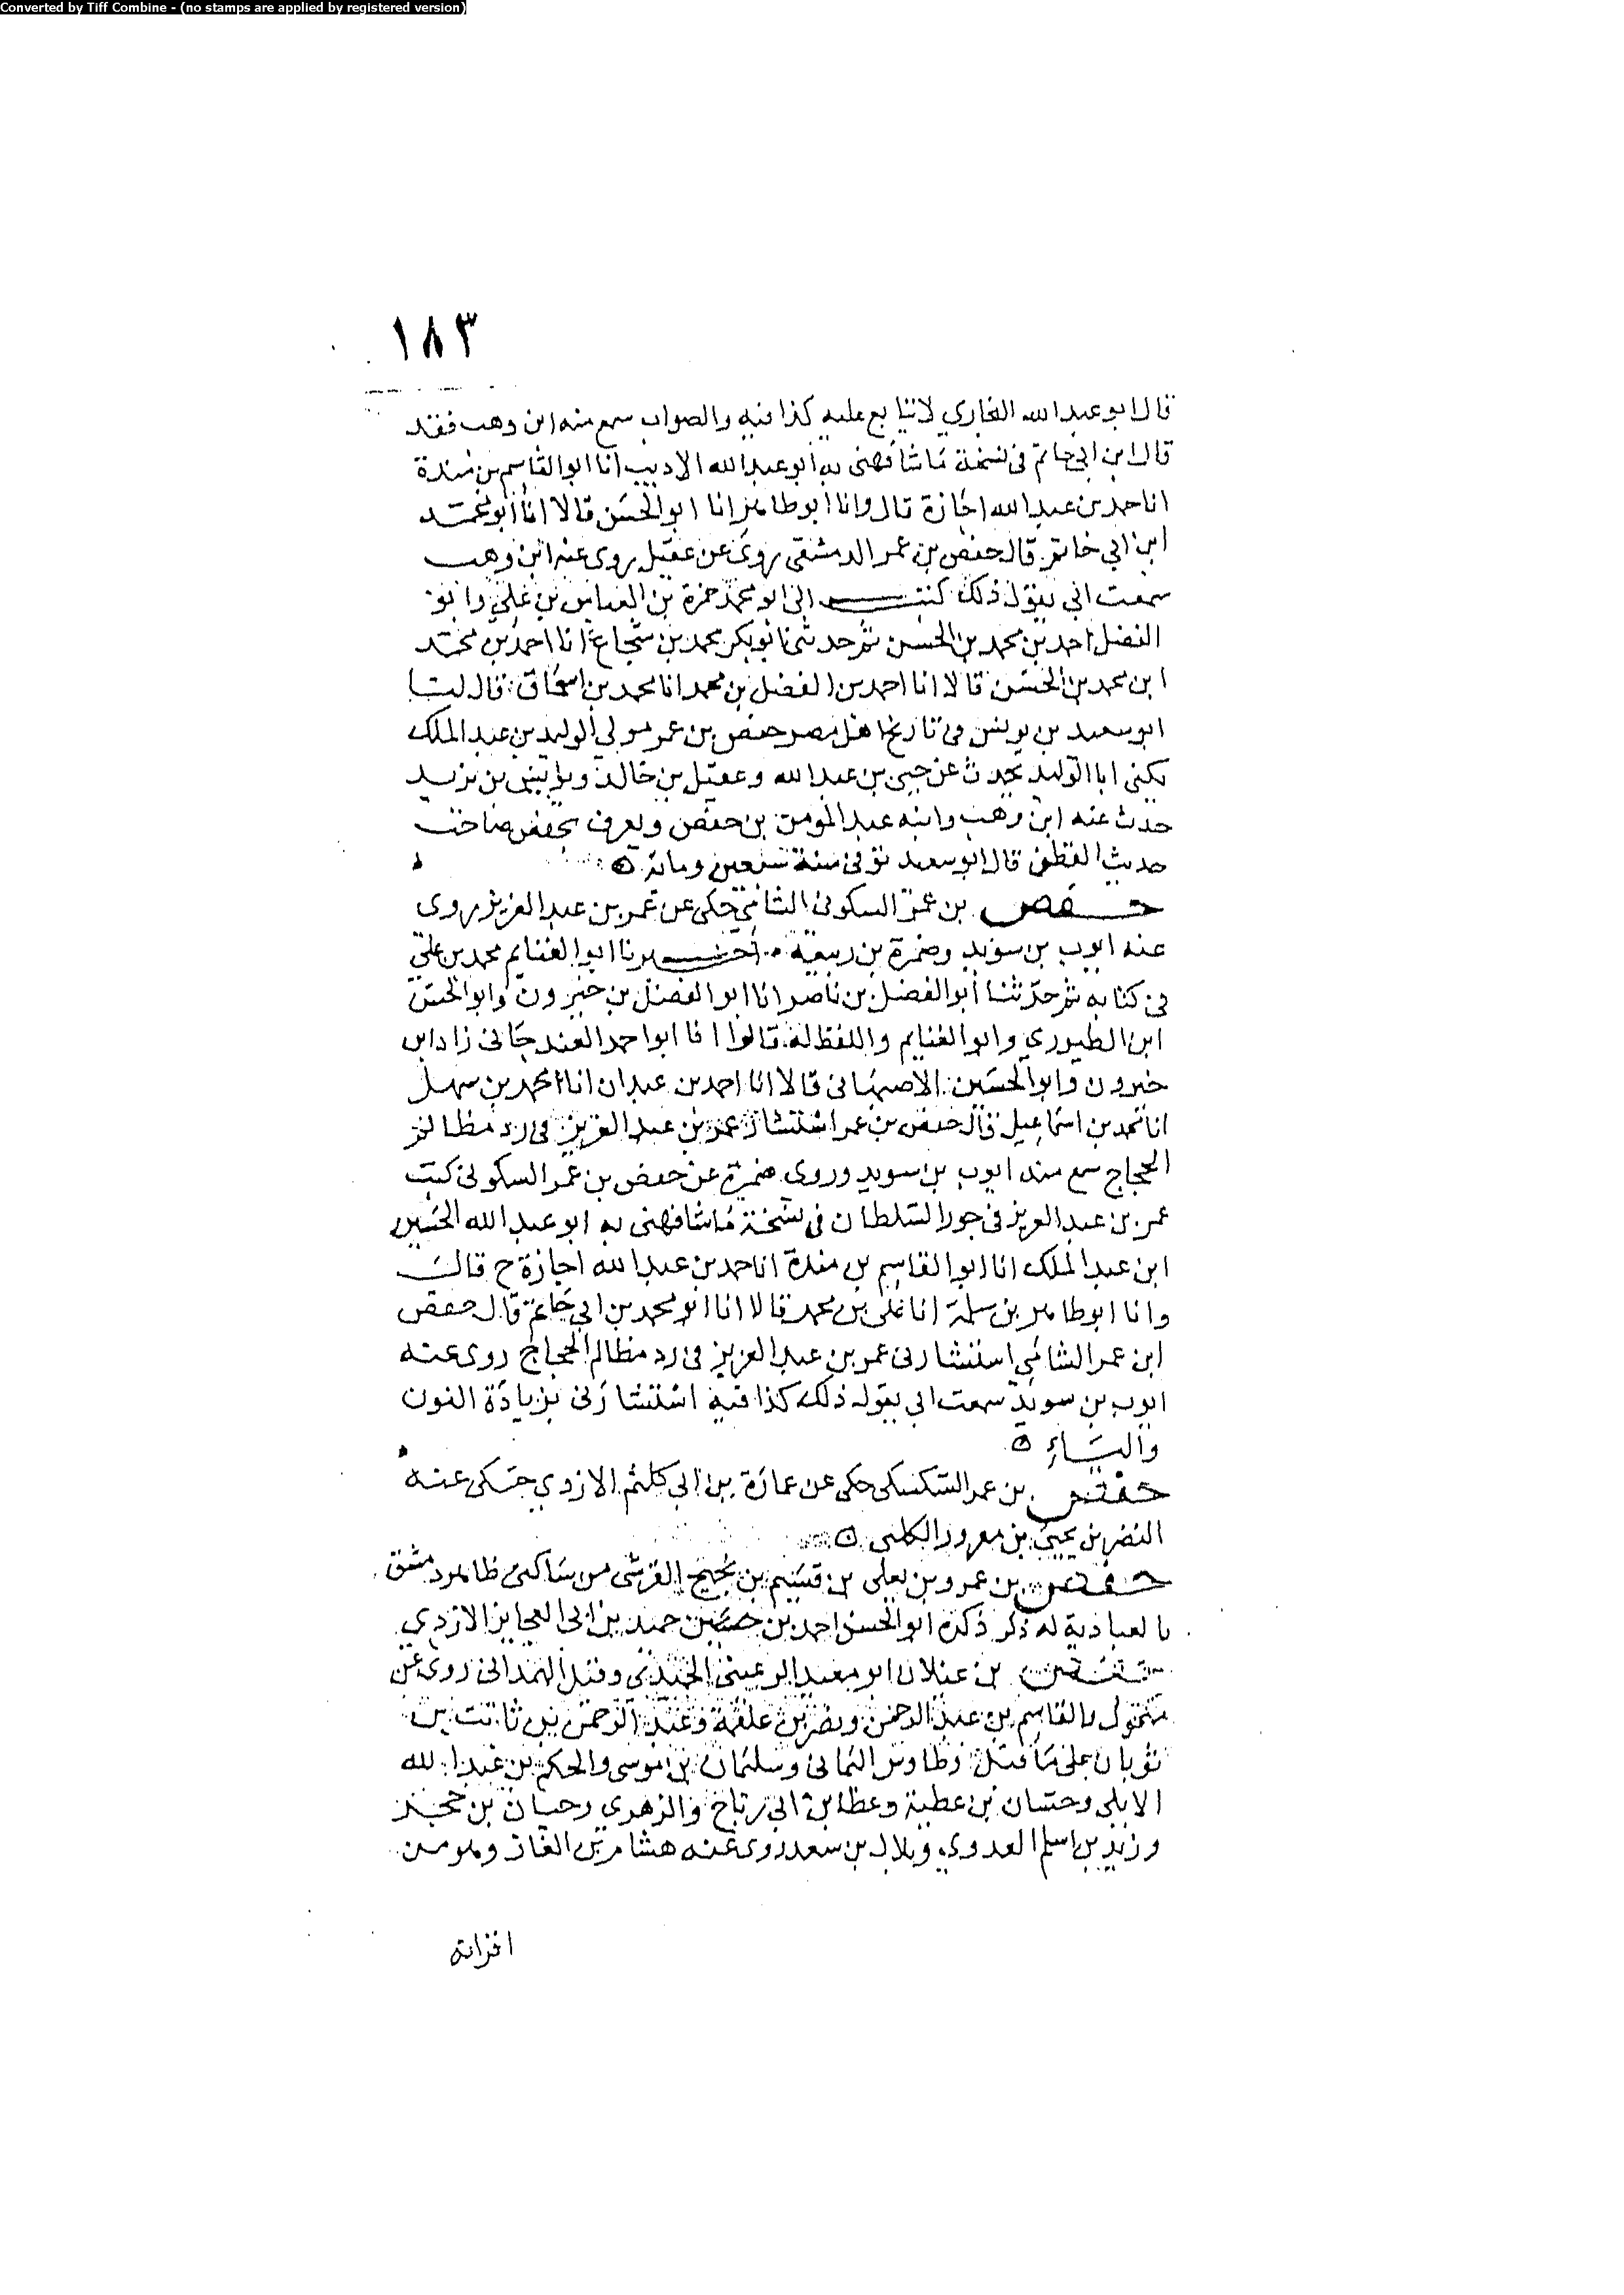 Converted by Tiff Combine - (no stamps are applied by registered version)
١٨٣
قال ابو عبد الله البخاري لا يتابع عليه كذا فيه والصواب سمع منه ابن وهب فقد
قال ابن ابي حاتم في نسخة ما شافهني به ابو عبد الله الاديب انا ابو القاسم بن مندة
انا حمد بن عبد الله اجازة قال وانا ابو طاهر انا ابو الحسن قالا انا ابو محمد
ابن ابي حاتم قال حفص بن عمر الدمشقي روى عن عقيل روى عنه ابن وهب
سمعت ابي يقول ذلك كتب الى ابو محمد حمزة بن العباس بن علي وابو
الفضل احمد بن محمد بن الحسن ثم حدثني ابو بكر محمد بن شجاع انا احمد بن محمد
ابن محمد بن الحسن قالا انا احمد بن الفضل بن محمد انا محمد بن اسحاق قال لنا
ابو سعيد بن يونس في تاريخ اهل مصر حفص بن عمر مولى الوليد بن عبد الملك
يكنى ابا الوليد يحدث عن حيي بن عبد الله وعقيل بن خالد ويونس بن يزيد
حدث عنه ابن وهب وابنه عبد المومن بن حفص ويعرف بحفص صاحب
حديث القطف قال ابو سعيد توفي سنة سبعين ومائة ه
حفص بن عمر السكوني الشامي حكى عن عمر بن عبد العزيز روى
عنه ايوب بن سويد وضمرة بن ربيعة اخبرنا ابو الغنايم محمد بن علي
في كتابه ثم حدثنا ابو الفضل بن ناصر انا ابو الفضل بن خيرون وابو الحسن
ابن الطيوري وابو الغنايم واللفظ له قالوا انا ابو احمد الغندجاني زاد ابن
خيرون وابو الحسين الاصبهاني قالا انا احمد بن عبدان انا محمد بن سهل
انا محمد بن اسماعيل قال حفص بن عمر استشار عمر بن عبد العزيز في رد مظالم
الحجاج سمع منه ايوب بن سويد وروى ضمرة عن حفص بن عمر السكوني كتب
عمر بن عبد العزيز في جور السلطان في نسخة ما شافهني به ابو عبد الله الحسين
ابن عبد الملك انا ابو القاسم بن مندة انا حمد بن عبد الله اجازة ح قال
وانا ابو طاهر بن سلمة انا علي بن محمد قالا انا ابو محمد بن ابي حاتم قال حفص
ابن عمر الشامي استشارني عمر بن عبد العزيز في رد مظالم الحجاج روى عنه
ايوب بن سويد سمعت ابي يقول ذلك كذا فيه استشارني بزيادة النون
والياء ه
حفص بن عمر السكسكي حكى عن عمارة بن ابي كلثم الازدي حكى عنه
النضر بن يحيى بن معرور الكلبي ه
حفص بن عمرو بن يعلى بن قسيم بن نجيح القرشي من ساكني ظاهر دمشق
بالعبادية له ذكر ذكره ابو الحسن احمد بن حميد بن ابي العجايز الازدي
حفص بن غيلان ابو معيد الرعيني وقيل الهمداني روى عن
مكحول والقاسم بن عبد الرحمن ونصر بن علقمة وعبد الرحمن بن ثابت بن
ثوبان على ما قيل وطاوس اليماني وسليمان بن موسى والحكم بن عبد الله
الايلي وحسان بن عطية وعطا بن ابي رباح والزهري وحيان بن حجر
وزيد بن اسلم العدوي وبلال بن سعد روى عنه هشام بن الغاز وهو من
اقرانه